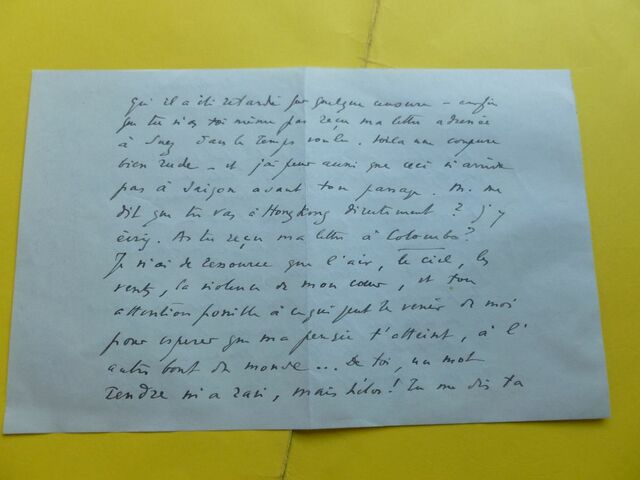 qu'il a été retardé par quelque censure – enfin
que tu n'as toi même pas reçu ma lettre adressée
à Suez dans le temps voulu. Voilà une coupure
bien rude – et j'ai peur aussi que ceci n'arrive
pas à Saigon avant ton passage. M. me
dit que tu vas à Hongkong directement ? J'y
écris. As tu reçu ma lettre à Colombo ?
Je n'ai de ressource que l'air, le ciel, les
vents, la violence de mon cœur, et ton
attention possible à ce qui peut te venir de moi
pour espérer que ma pensée t'atteint, à l'
autre bout du monde... De toi, un mot
tendre m'a ravi, mais hélas ! Tu me dis ta